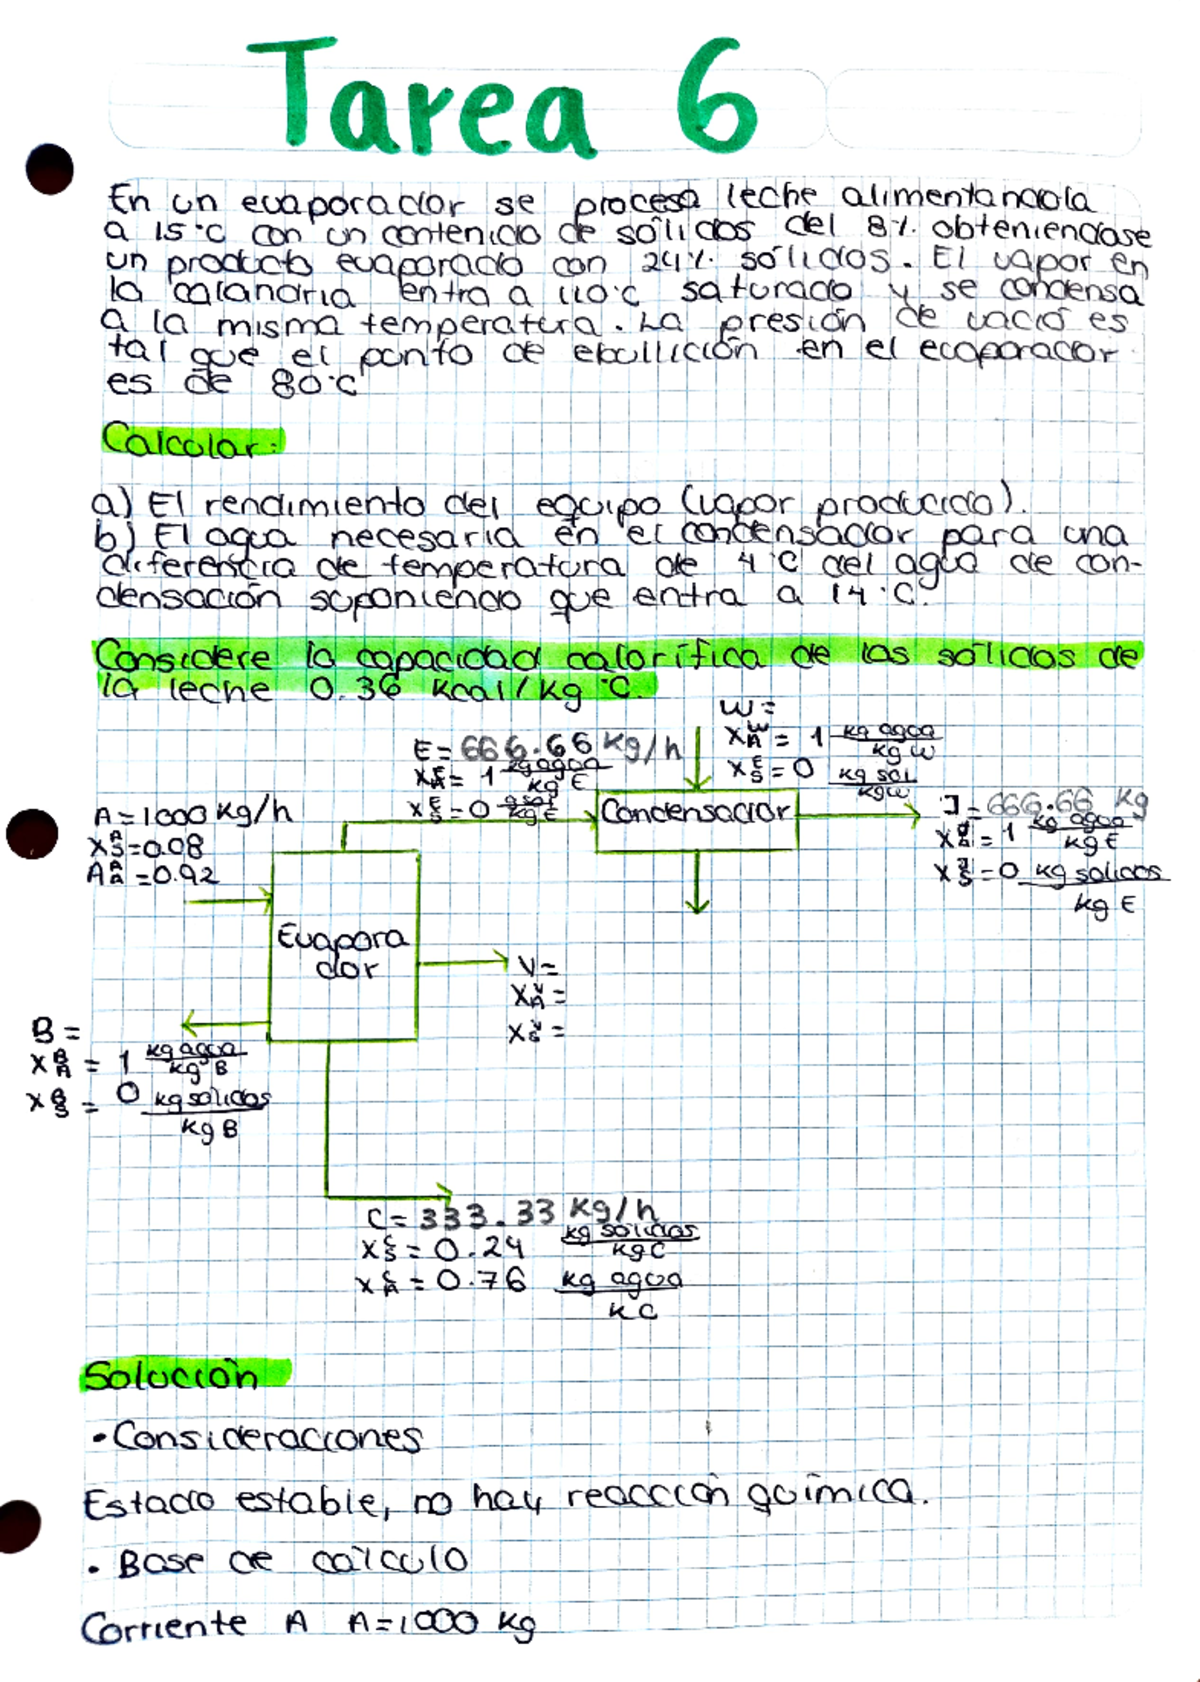 Tarea 6
En un evaporador se procesa leche alimentandola
a 15°C con un contenido de sólidos del 8% obteniendose
un producto evaporado con 24% sólidos. El vapor en
la calandria entra a 110°C saturado y se condensa
a la misma temperatura. La presión de vacio es
tal que el punto de ebullición en el evaporador
es de 80°C
Calcular:
a) El rendimiento del equipo (vapor producido).
b) El agua necesaria en el condensador para una
diferencia de temperatura de 4°C del agua de con-
densación suponiendo que entra a 14°C.
Considere la capacidad calorífica de los sólidos de
la leche 0.36 kcal/kg °C.
W=
X_A^W = 1 kg agua / kg W
X_S^E = 0 kg sol / kg W
E = 666.66 kg/h
X_A^E = 1 kg agua / kg E
X_S^E = 0 kg sol / kg E
Condensador
J = 666.66 kg
X_A^J = 1 kg agua / kg E
X_S^J = 0 kg solidos / kg E
A = 1000 kg/h
X_S^A = 0.08
A_A^A = 0.92
Evapora
dor
V=
X_A^V =
X_S^V =
B =
X_A^B = 1 kg agua / kg B
X_S^B = 0 kg solidos / kg B
C = 333.33 kg/h
X_S^C = 0.24 kg solidos / kg C
X_A^C = 0.76 kg agua / k C
Solución
• Consideraciones
Estado estable, no hay reacción química.
• Base de cálculo
Corriente A A=1000 kg